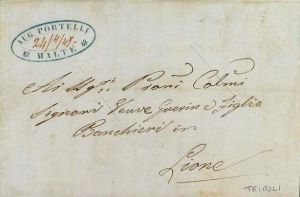 AUG. PORTELLI
24/4/47
MALTE
Ai Sigri. Proni Colmi
Signori Veuve Guerin e Figlio
Banchieri in
Lione
TRIPOLI